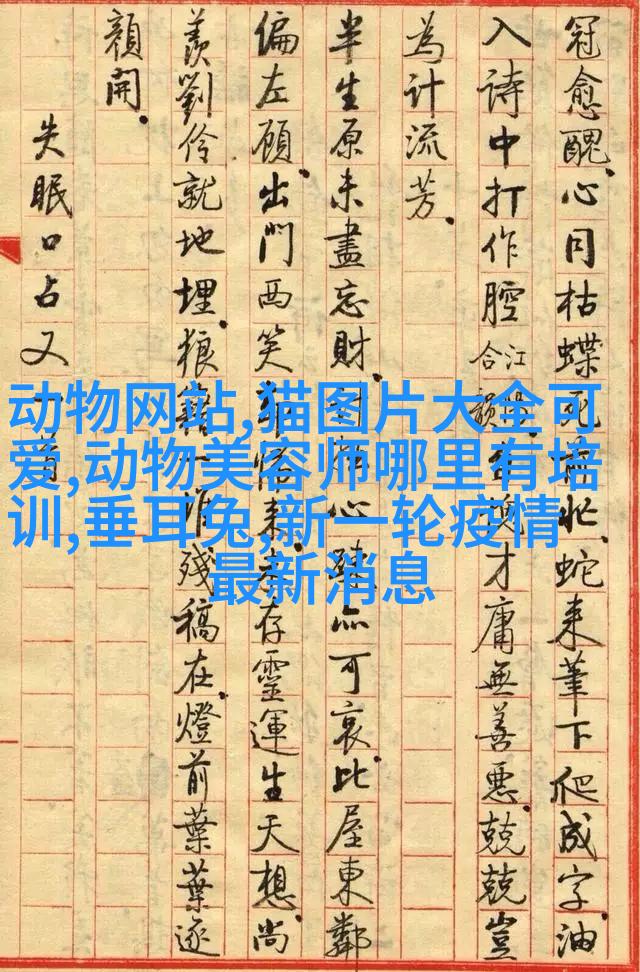 冠愈醜、心同枯蝶死前忙、蛇来筆下爬成字、油
入詩中打作腔江陽合韻。愧才庸無善惡、兢兢豈
為計流芳。
半生原未盡忘財、心疎亦可哀、比屋東鄰
偏左顧、出門西笑来、存靈運生天想、尚
羨劉伶就地埋、狼藉一堆殘稿在、燈前葉葉逐
顔開。
失眠口占又一首
动物网站,猫图片大全可
爱,动物美容师哪里有培
训,垂耳兔,新一轮疫情
最新消息